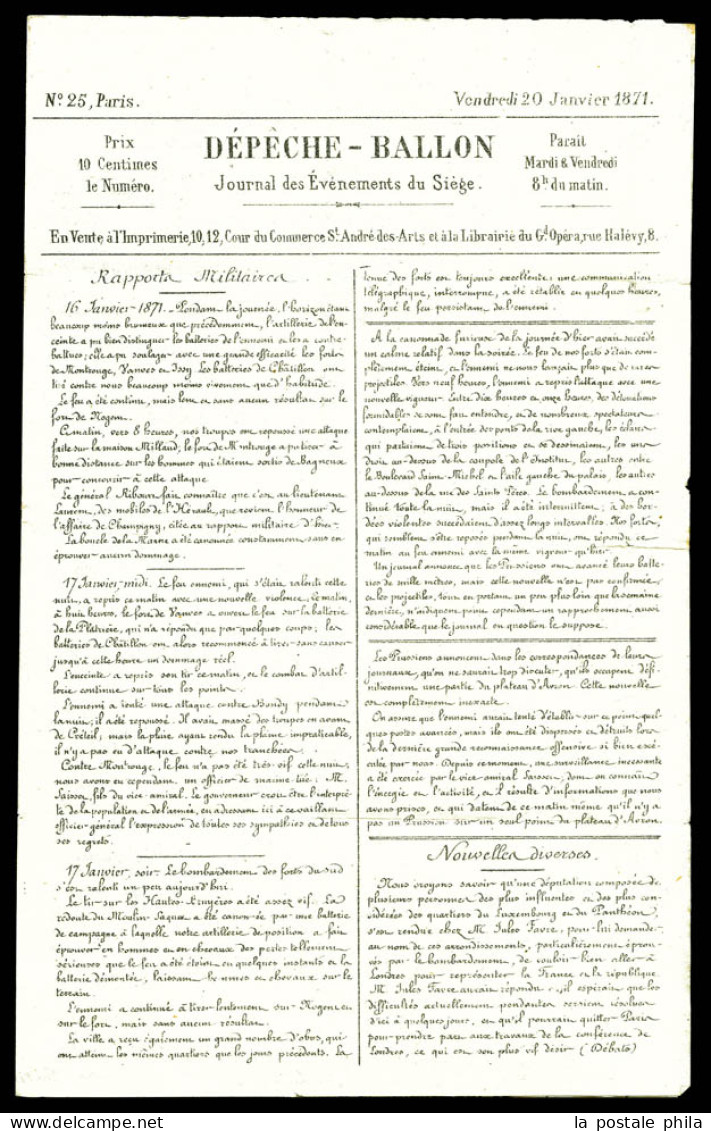 Nº 25, Paris.
Vendredi 20 Janvier 1871.
Prix
10 Centimes
le Numéro.
DÉPÊCHE - BALLON
Journal des Événements du Siège.
Parait
Mardi & Vendredi
8h du matin.
En Vente à l'Imprimerie, 10, 12, Cour du Commerce St André-des-Arts et à la Librairie du Gd Opéra, rue Halévy, 8.
Rapports Militaires
16 Janvier 1871. Pendant la journée, l'horizon étant
beaucoup moins brumeux que précédemment, l'artillerie de l'en-
ceinte a pu bien distinguer les batteries de l'ennemi et les a contre-
battues; elle a pu soulager avec une grande efficacité les forts
de Montrouge, Vanves et Issy. Les batteries de Châtillon ont
tiré contre nous beaucoup moins vivement que d'habitude.
Le feu a été continu, mais lent et sans aucun résultat sur le
fort de Nogent.
Ce matin, vers 8 heures, nos troupes ont repoussé une attaque
faite sur la maison Millaud, le fort de Montrouge a pu tirer à
bonne distance sur les hommes qui étaient sortis de Bagneux
pour concourir à cette attaque
Le général Ribourt fait connaître que c'est au lieutenant
Laurent, des mobiles de l'Hérault, que revient l'honneur de
l'affaire de Champigny, citée au rapport militaire d'hier.
La boucle de la Marne a été canonnée constamment sans en
éprouver aucun dommage.
17 Janvier, midi. Le feu ennemi, qui s'était ralenti cette
nuit, a repris ce matin avec une nouvelle violence; ce matin,
à huit heures, le fort de Vanves a ouvert le feu sur la batterie
de la Platrière, qui n'a répondu que par quelques coups; les
batteries de Châtillon ont alors recommencé à tirer sans causer
jusqu'à cette heure un dommage réel.
L'enceinte a repris son tir ce matin, et le combat d'artil-
lerie continue sur tous les points.
L'ennemi a tenté une attaque contre Bondy pendant
la nuit; il a été repoussé. Il avait massé des troupes en avant
de Créteil; mais la pluie ayant rendu la plaine impraticable,
il n'y a pas eu d'attaque contre nos tranchées.
Contre Montrouge, le feu n'a pas été très vif cette nuit;
nous avons eu cependant un officier de marine tué: M.
Saisset, fils du vice-amiral. Le gouverneur croit être l'interprè-
te de la population et de l'armée, en adressant ici à ce vaillant
officier général l'expression de toutes ses sympathies et de tous
ses regrets.
17 Janvier, soir. Le bombardement des forts du sud
s'est ralenti un peu aujourd'hui.
Le tir sur les Hautes-Bruyères a été assez vif. La
redoute du Moulin Saquet a été canonnée par une batterie
de campagne à laquelle notre artillerie de position a fait
éprouver en hommes et en chevaux des pertes tellement
sérieuses que le feu a été éteint en quelques instants et la
batterie démontée, laissant hommes et chevaux sur le
terrain.
L'ennemi a continué à tirer lentement sur Nogent et
sur le fort, mais sans aucun résultat.
La ville a reçu également un grand nombre d'obus, qui
ont atteint les mêmes quartiers que les jours précédents. La
tenue des forts est toujours excellente; une communication
télégraphique, interrompue, a été rétablie en quelques heures,
malgré le feu persistant de l'ennemi.
A la canonnade furieuse de la journée d'hier avait succédé
un calme relatif dans la soirée. Le feu de nos forts s'était com-
plètement éteint, et l'ennemi ne nous lançait plus que de rares
projectiles. Vers neuf heures, l'ennemi a repris l'attaque avec une
nouvelle vigueur. Entre dix heures et onze heures, des détonations
formidables se sont fait entendre, et de nombreux spectateurs
contemplaient, à l'entrée des ponts de la rive gauche, les éclairs
qui partaient de trois positions et se dessinaient, les uns
droit au-dessus de la coupole de l'Institut, les autres entre
le Boulevard Saint-Michel et l'aile gauche du palais, les autres
au-dessus de la rue des Saints Pères. Le bombardement a con-
tinué toute la nuit, mais il a été intermittent; à des bor-
dées violentes succédaient d'assez longs intervalles. Nos forts,
qui semblent s'être reposés pendant la nuit, ont répondu ce
matin au feu ennemi avec la même vigueur qu'hier.
Un journal annonce que les Prussiens ont avancé leurs batte-
ries de mille mètres, mais cette nouvelle n'est pas confirmée,
et les projectiles, tout en portant un peu plus loin que la semaine
dernière, n'indiquent point cependant un rapprochement aussi
considérable que le journal en question le suppose.
Les Prussiens annoncent dans les correspondances de leurs
journaux, qu'on ne saurait trop discuter, qu'ils occupent défi-
nitivement une partie du plateau d'Avron. Cette nouvelle
est complètement inexacte.
On assure que l'ennemi aurait tenté d'établir sur ce point quel-
ques postes avancés, mais ils ont été dispersés et détruits lors
de la dernière grande reconnaissance offensive si bien exécu-
tée par nous. Depuis ce moment, une surveillance incessante
a été exercée par le vice-amiral Saisset, dont on connait
l'énergie et l'activité, et il résulte d'informations que nous
avons prises, et qui datent de ce matin même qu'il n'y a
pas un Prussien sur un seul point du plateau d'Avron.
Nouvelles diverses.
Nous croyons savoir qu'une députation composée de
plusieurs personnes des plus influentes et des plus con-
sidérées des quartiers du Luxembourg et du Panthéon
s'est rendue chez M. Jules Favre, pour lui demander,
au nom de ces arrondissements, particulièrement éprou-
vés par le bombardement, de vouloir bien aller à
Londres pour représenter la France et la république
M. Jules Favre aurait répondu qu'il espérait que les
difficultés actuellement pendantes seraient résolues
d'ici à quelques jours, et qu'il pourrait quitter Paris
pour prendre part aux travaux de la conférence de
Londres, ce qui est son plus vif désir (Débats)
la postale phila